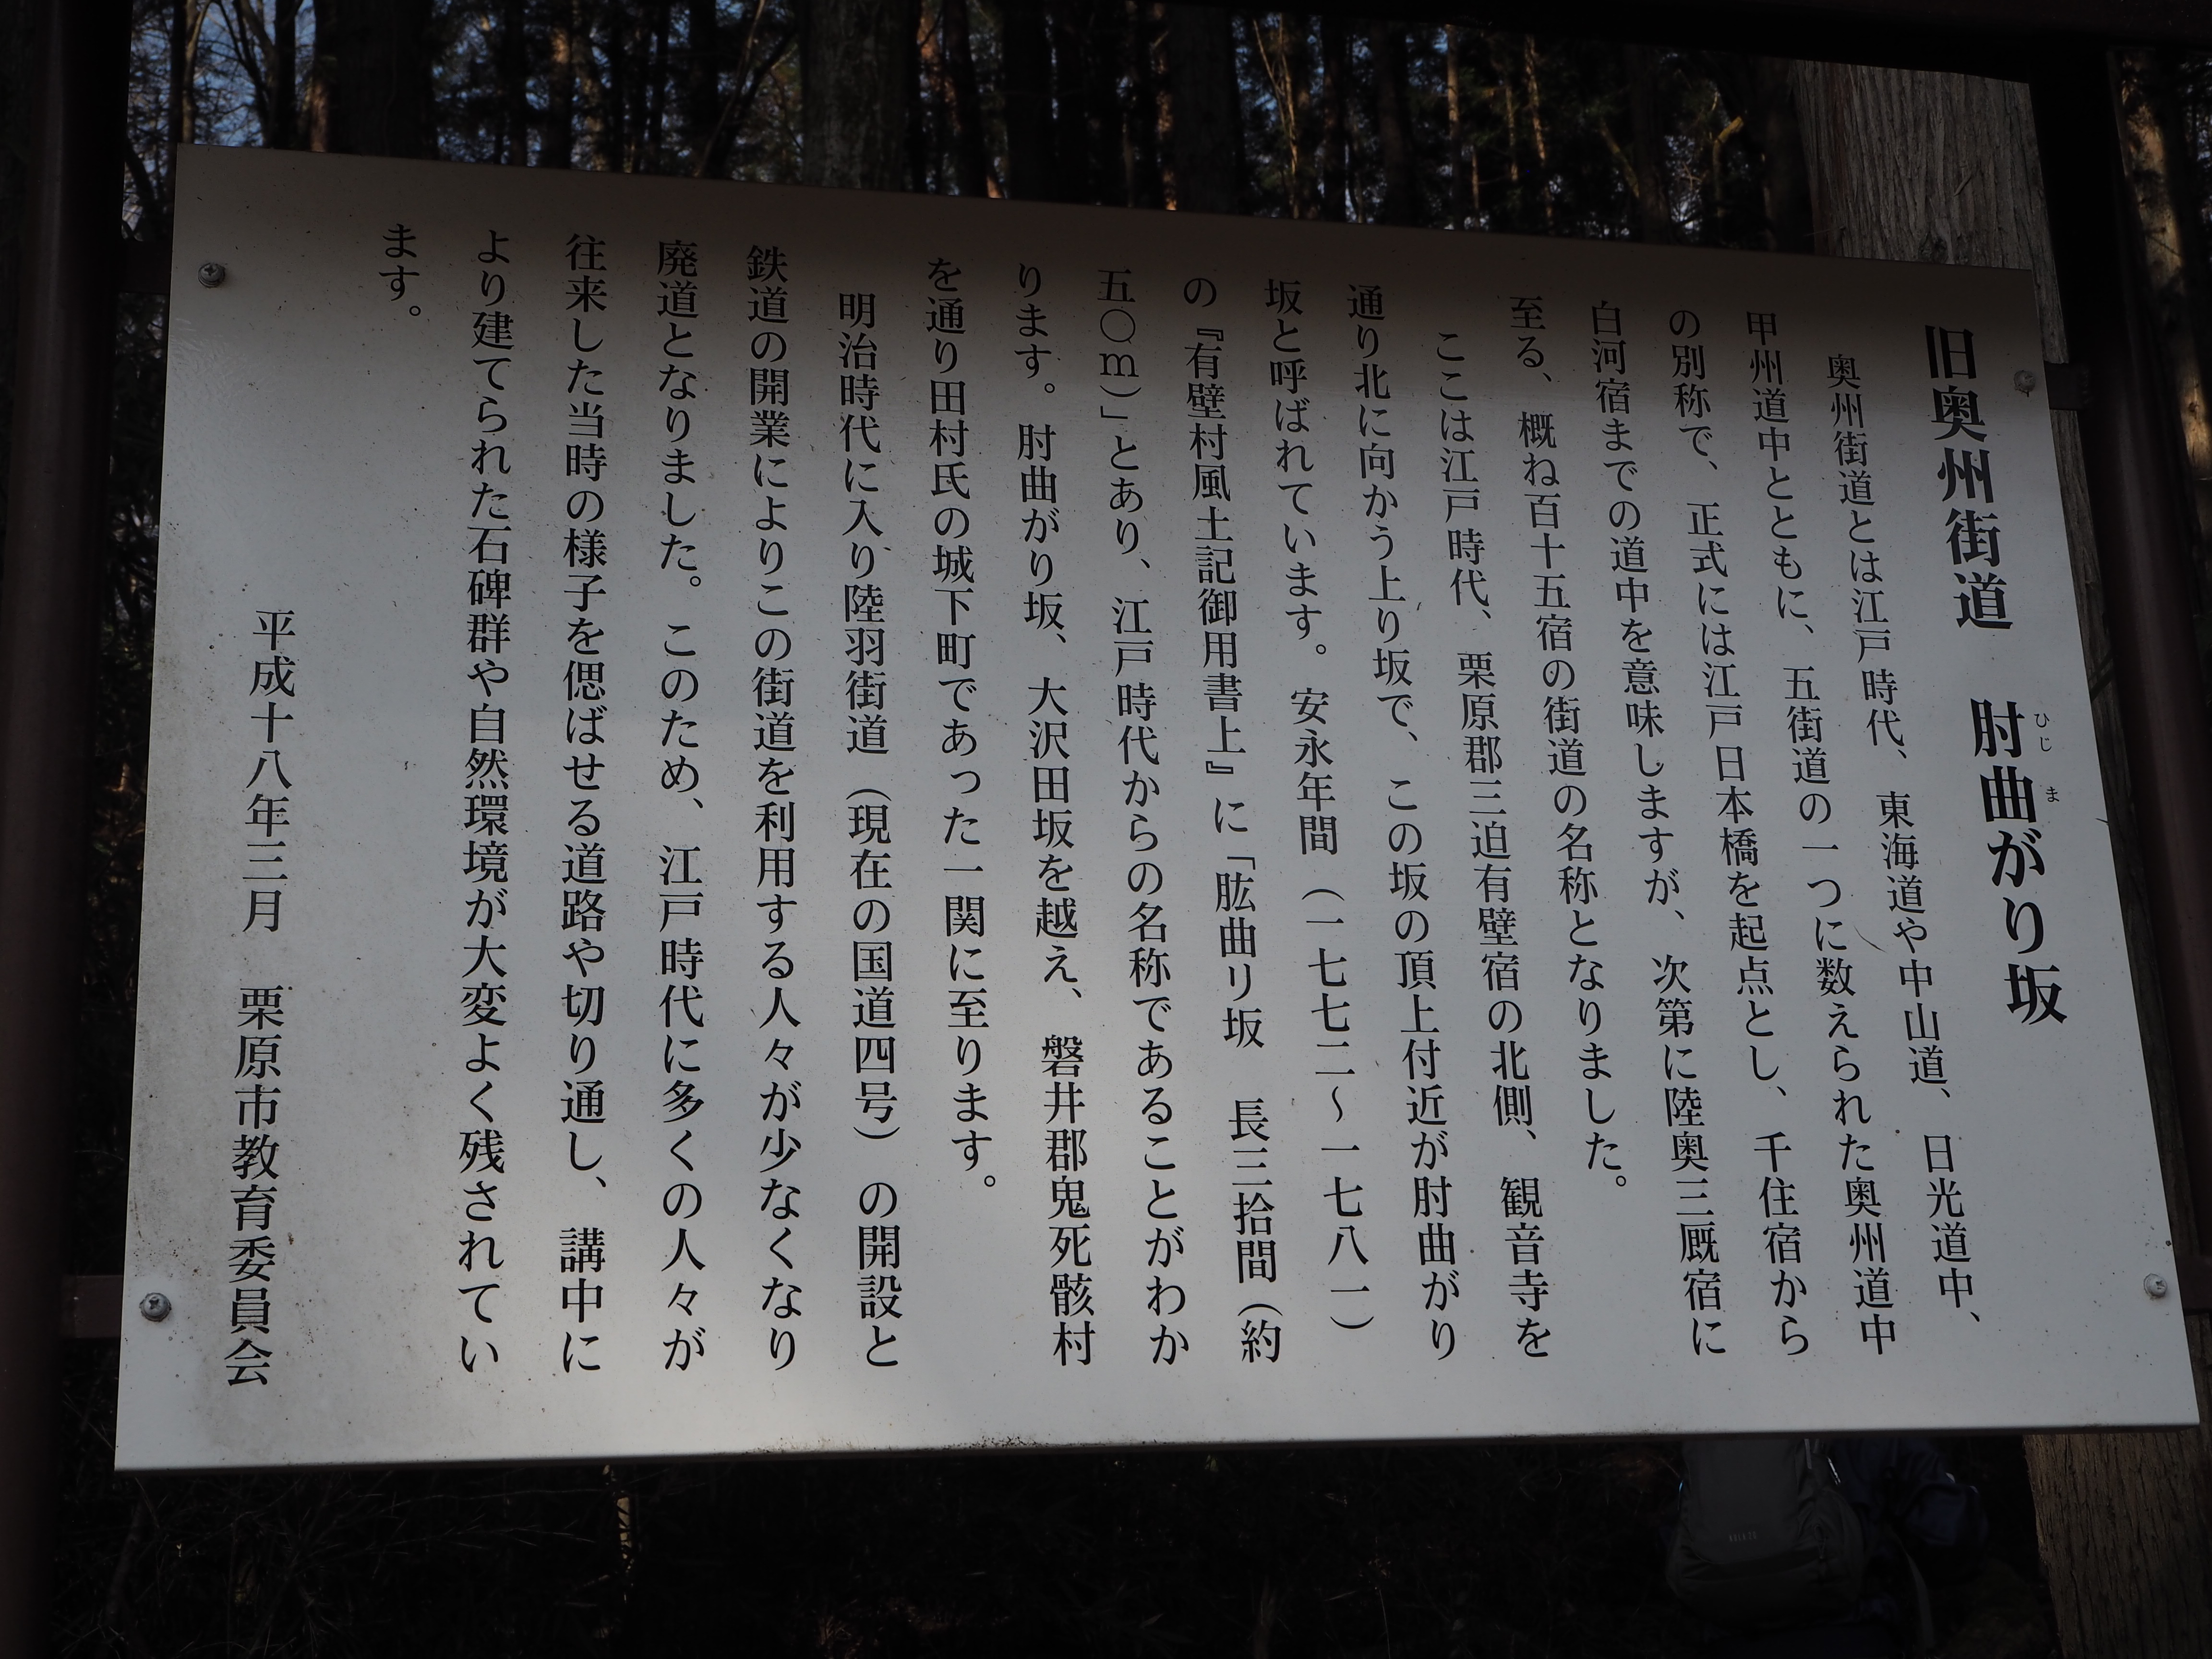 旧奥州街道　肘曲がり坂
ひじ　ま
奥州街道とは江戸時代、東海道や中山道、日光道中、
甲州道中とともに、五街道の一つに数えられた奥州道中
の別称で、正式には江戸日本橋を起点とし、千住宿から
白河宿までの道中を意味しますが、次第に陸奥三厩宿に
至る、概ね百十五宿の街道の名称となりました。
ここは江戸時代、栗原郡三迫有壁宿の北側、観音寺を
通り北に向かう上り坂で、この坂の頂上付近が肘曲がり
坂と呼ばれています。安永年間（一七七二～一七八一）
の『有壁村風土記御用書上』に「肱曲リ坂　長三拾間（約
五〇ｍ）」とあり、江戸時代からの名称であることがわか
ります。肘曲がり坂、大沢田坂を越え、磐井郡鬼死骸村
を通り田村氏の城下町であった一関に至ります。
明治時代に入り陸羽街道（現在の国道四号）の開設と
鉄道の開業によりこの街道を利用する人々が少なくなり
廃道となりました。このため、江戸時代に多くの人々が
往来した当時の様子を偲ばせる道路や切り通し、講中に
より建てられた石碑群や自然環境が大変よく残されてい
ます。
平成十八年三月　栗原市教育委員会